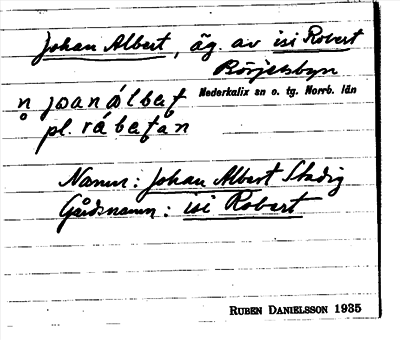 Johan Albert, äg. av isi Robert
Börjelsbyn
Nederkalix sn o. tg. Norrb. län
n joanálbeţ
pl. rábeţan
Namn: Johan Albert Stadig
Gårdsnamn: isi Robert
RUBEN DANIELSSON 1935